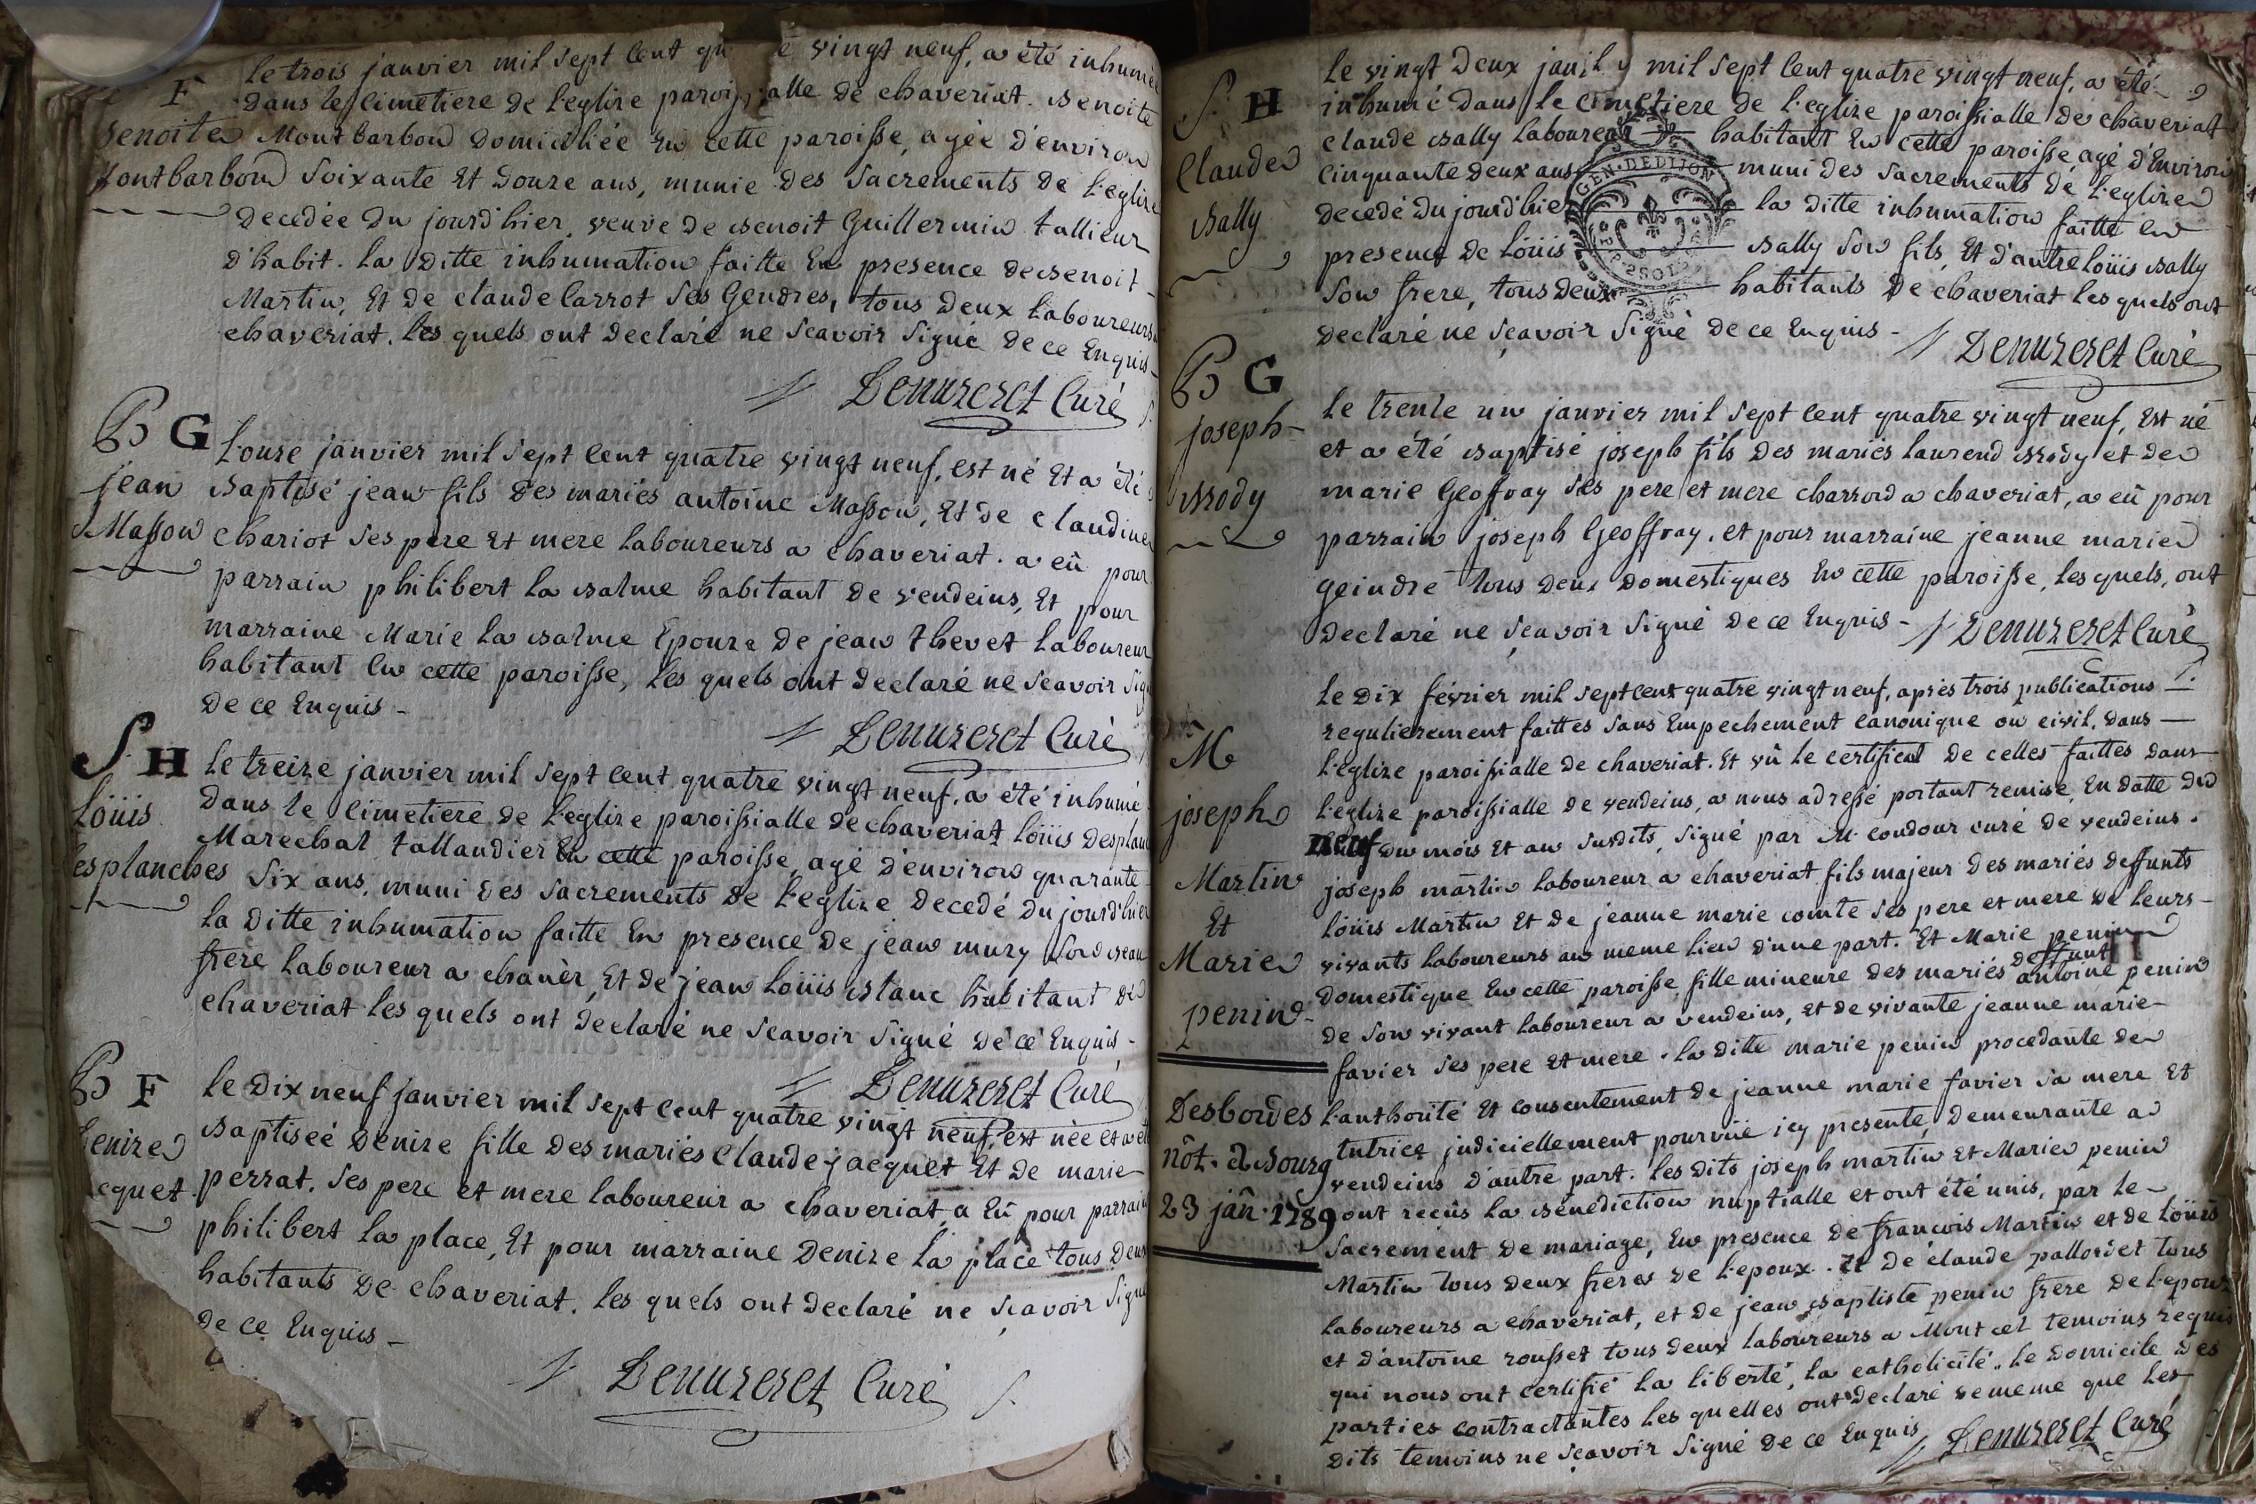 F
Benoite
Montbarbon
Le trois janvier mil sept cent qu e vingt neuf, a été inhumée
dans le Cimetiere de l'eglize paroissialle de chaveriat. Benoite
Montbarbon domiciliée en cette paroisse, agée d'environ
soixante et douze ans, munie des sacrements de l'eglize
decedée du jourd'hier, veuve de Benoit Guillermin tallieur
d'habit. la ditte inhumation faitte en presence de Benoit
Martin, et de claude Carrot ses Gendres, tous deux Laboureurs
chaveriat. les quels ont declaré ne scavoir signé de ce Enquis -
Denuzeret Curé
B G
jean
Masson
L'onze janvier mil sept cent quatre vingt neuf, est né et a été
Baptisé jean fils des mariés antoine Masson, et de claudine
chariot ses pere et mere laboureurs a chaveriat. a eû pour
parrain philibert la Balme habitant de vendeins, et pour
marraine Marie la Balme Epouze de jean thevet laboureur
habitant en cette paroisse, les quels ont declaré ne scavoir sig
de ce Enquis -
Denuzeret Curé
S. H
Loüis
Desplanches
Le treize janvier mil sept cent quatre vingt neuf, a été inhumé
dans le Cimetiere de l'eglize paroissialle de chaveriat Loüis Desplan
Marechal tallandier en cette paroisse, agé d'environ quarante
six ans, muni des sacrements de l'eglize decedé du jourd'hier
la ditte inhumation faitte en presence de jean mury son beau
frere laboureur a chanèr, et de jean Loüis Blanc habitant de
chaveriat les quels ont declaré ne scavoir signé de ce Enquis -
Denuzeret Curé
B F
Denize
jacquet
Le dix neuf janvier mil sept cent quatre vingt neuf, est née et a été
Baptiseé Denize fille des mariés claude jacquet et de marie
perrat. ses pere et mere laboureur a chaveriat, a eû pour parrain
philibert la place, et pour marraine Denize la place tous deux
habitants de chaveriat. les quels ont declaré ne scavoir signé
de ce Enquis -
Denuzeret Curé
S. H
Claude
Bally
Le vingt deux janvier mil sept cent quatre vingt neuf, a été
inhumé dans le cimetiere de l'eglize paroissialle de chaveriat
claude Bally laboureur habitant en cette paroisse agé d'Environ
cinquante deux ans muni des sacrements de l'eglize
decedé du jourd'hier la ditte inhumation faitte en
presence de Loüis Bally son fils, et d'autre Loüis Bally
son frere, tous deux habitants de chaveriat les quels ont
declaré ne scavoir signé de ce Enquis -
Denuzeret Curé
GEN. DE DIJON
P.P. 2 SOLS
B G
joseph
Brody
Le trente un janvier mil sept cent quatre vingt neuf, est né
et a été Baptisé joseph fils des mariés laurend Brody et de
marie Geoffray ses pere et mere charrond a chaveriat, a eû pour
parrain joseph Geoffray, et pour marraine jeanne marie
geindre tous deux domestiques en cette paroisse, les quels, ont
declaré ne scavoir signé de ce Enquis -
Denuzeret Curé
M
joseph
Martin
Et
Marie
penin
Le dix février mil sept cent quatre vingt neuf, après trois publications
regulierement faittes sans Empechement canonique ou civil, dans
l'eglize paroissialle de chaveriat. Et vû le certificat de celles faittes dans
l'eglize paroissialle de vendeins, a nous adressé portant remise, en datte du
neuf du mois et an susdits, signé par M. coudour curé de vendeins.
joseph martin laboureur a chaveriat fils majeur des mariés deffunts
loüis Martin et de jeanne marie comte ses pere et mere de leurs
vivants laboureurs au meme lieu d'une part. Et Marie penin
domestique en cette paroisse, fille mineure des mariés deffunt antoine penin
de son vivant laboureur a vendeins, et de vivante jeanne marie
favier ses pere et mere. la ditte marie penin procedante de
l'authorité et consentement de jeanne marie favier sa mere et
tutrice judiciellement pourvüe icy presente, demeurante a
vendeins d'autre part. les dits joseph martin et Marie penin
ont reçûs la Bénediction nuptialle et ont été unis, par le
sacrement de mariage, en presence de francois Martin et de Loüis
Martin tous deux freres de l'epoux. et de claude pallordet tous
laboureurs a chaveriat, et de jean Baptiste penin frere de l'epouz
et d'antoine rousset tous deux laboureurs a Montcet temoins requis
qui nous ont certifié la liberté, la catholicité. le domicile des
parties contractantes les quelles ont declaré de meme que les
dits temoins ne scavoir signé de ce Enquis
Denuzeret Curé
Desbordes
nôt. à Bourg
23 jan. 1789